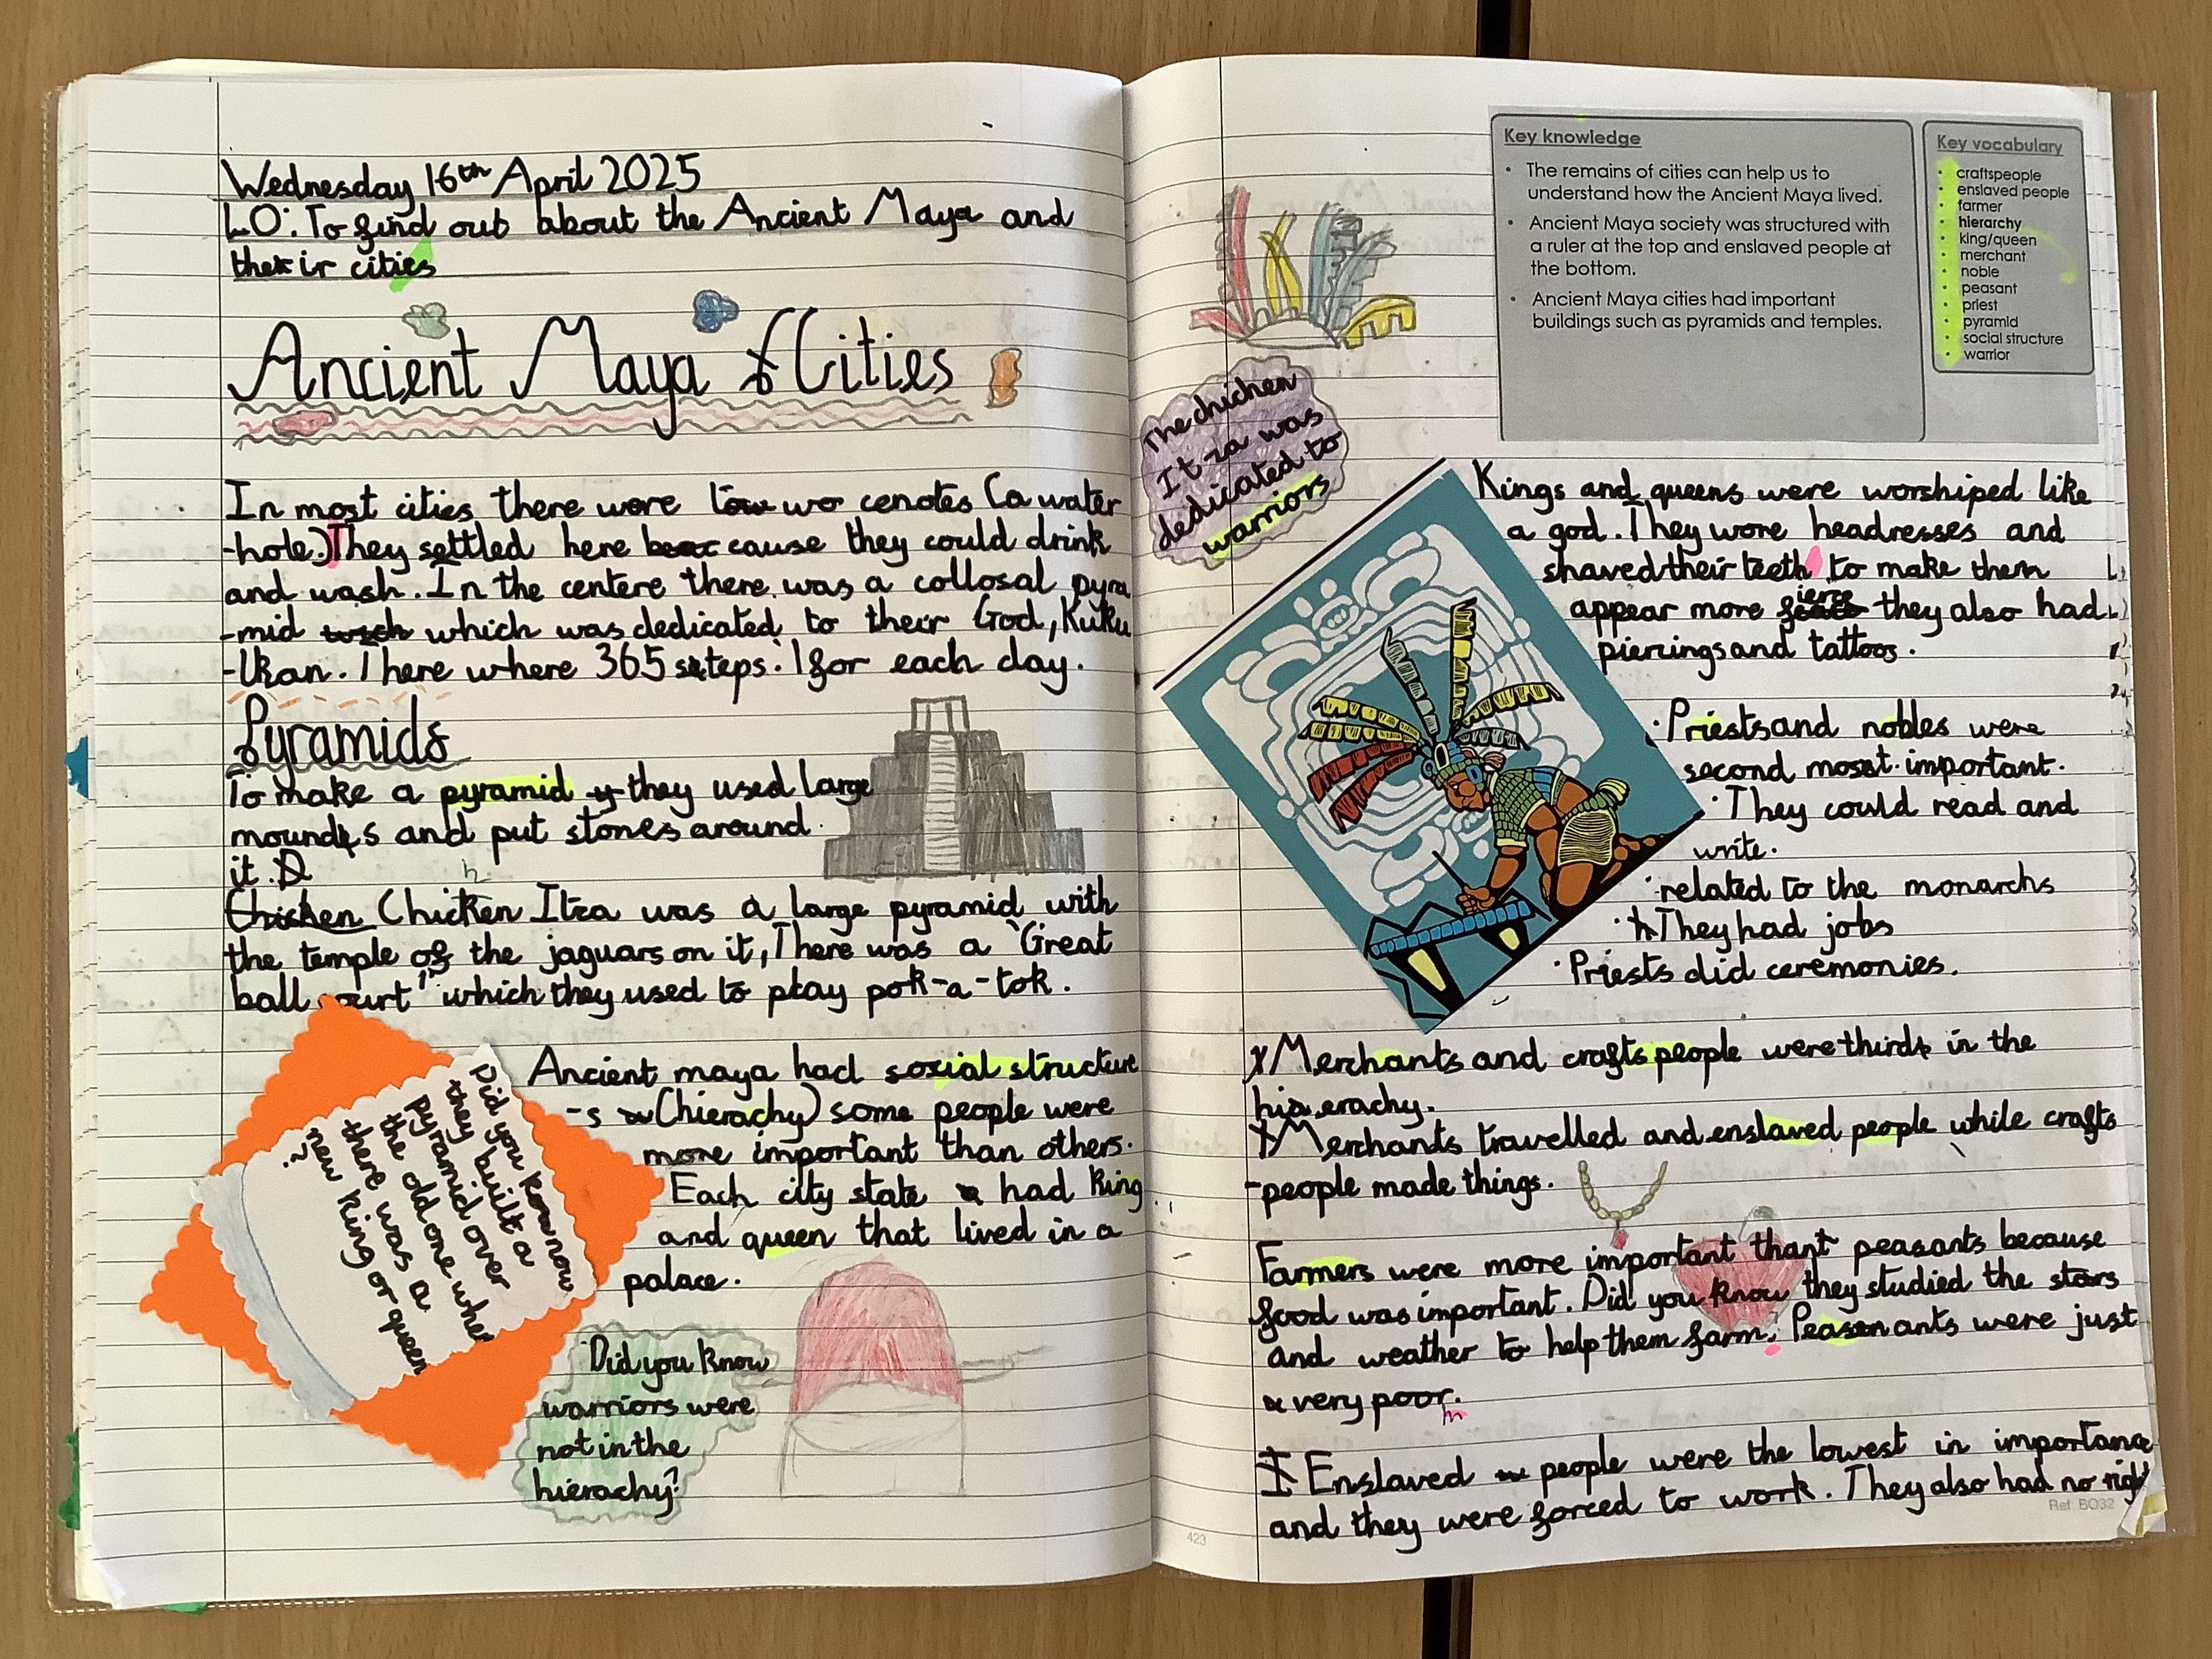 Wednesday 16th April 2025
LO: To find out about the Ancient Maya and
their cities
Ancient Maya Cities
In most cities there were cenotes (a water
-hole.) They settled here because they could drink
and wash. In the centere there was a collosal pyra
-mid which was dedicated to their God, Kuku
-lkan. There where 365 steps. 1 for each day.
Pyramids
To make a pyramid they used large
mounds and put stones around
it.
Chicken Itza was a large pyramid with
the temple of the jaguars on it, There was a "Great
ball court" which they used to play pok-a-tok.
Did you know
they built a
pyramid over
the old one when
there was a
new king or queen
?
Ancient maya had social structure
-s (hierachy) some people were
more important than others.
Each city state had king
and queen that lived in a
palace.
Did you know
warriors were
not in the
hierachy?
The chichen
Itza was
dedicated to
warriors
Key knowledge
• The remains of cities can help us to
understand how the Ancient Maya lived.
• Ancient Maya society was structured with
a ruler at the top and enslaved people at
the bottom.
• Ancient Maya cities had important
buildings such as pyramids and temples.
Key vocabulary
• craftspeople
• enslaved people
• farmer
• hierarchy
• king/queen
• merchant
• noble
• peasant
• priest
• pyramid
• social structure
• warrior
Kings and queens were worshiped like
a god. They wore headresses and
shaved their teeth to make them
appear more fierce they also had
piercings and tattoos.
· Priests and nobles were
second most important.
· They could read and
write.
· related to the monarchs
· They had jobs
· Priests did ceremonies.
Merchants and crafts people were third in the
hierachy.
Merchants travelled and enslaved people while crafts
-people made things.
Farmers were more important than peasants because
food was important. Did you know they studied the stars
and weather to help them farm. Peasants were just
very poor.
Enslaved people were the lowest in importance
and they were forced to work. They also had no right
423
Ref BO32